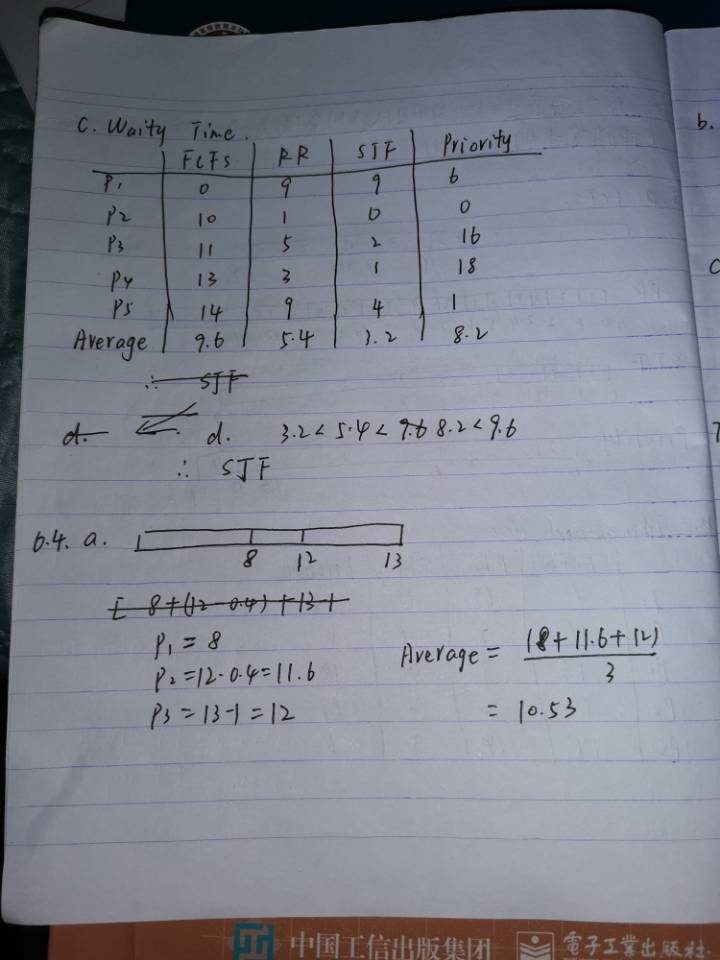 C. Waity Time.
FCFS RR SJF Priority
P1 0 9 9 6
P2 10 1 0 0
P3 11 5 2 16
P4 13 3 1 18
P5 14 9 4 1
Average 9.6 5.4 3.2 8.2
∴ SJF
d. d. 3.2 < 5.4 < 9.6 8.2 < 9.6
∴ SJF
6.4. a.
8 12 13
8+(12-0.4)+13-1
P1 = 8
P2 = 12-0.4 = 11.6
P3 = 13-1 = 12
Average = (8+11.6+12)
3
= 10.53
b.
中国工信出版集团 電子工業出版社